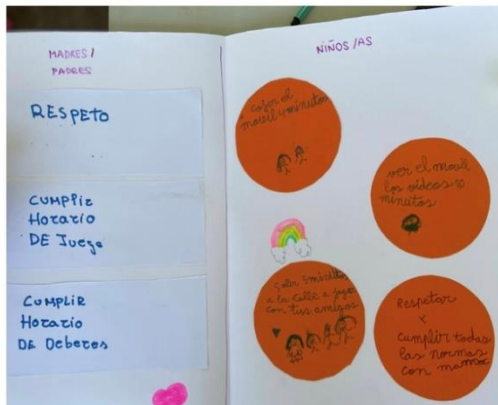 MADRES/
PADRES
RESPETO
CUMPliR
Horario
DE Juego
CUMPLIR
Horario
DE Deberes
NIÑOS/AS
coger el
movil 4 minutos
ver el movil
los videos
minutos
Salir 5 minutitos
a la calle a jugar
con tus amigos
Respetar
y
cumplir todas
las normas
con mamá